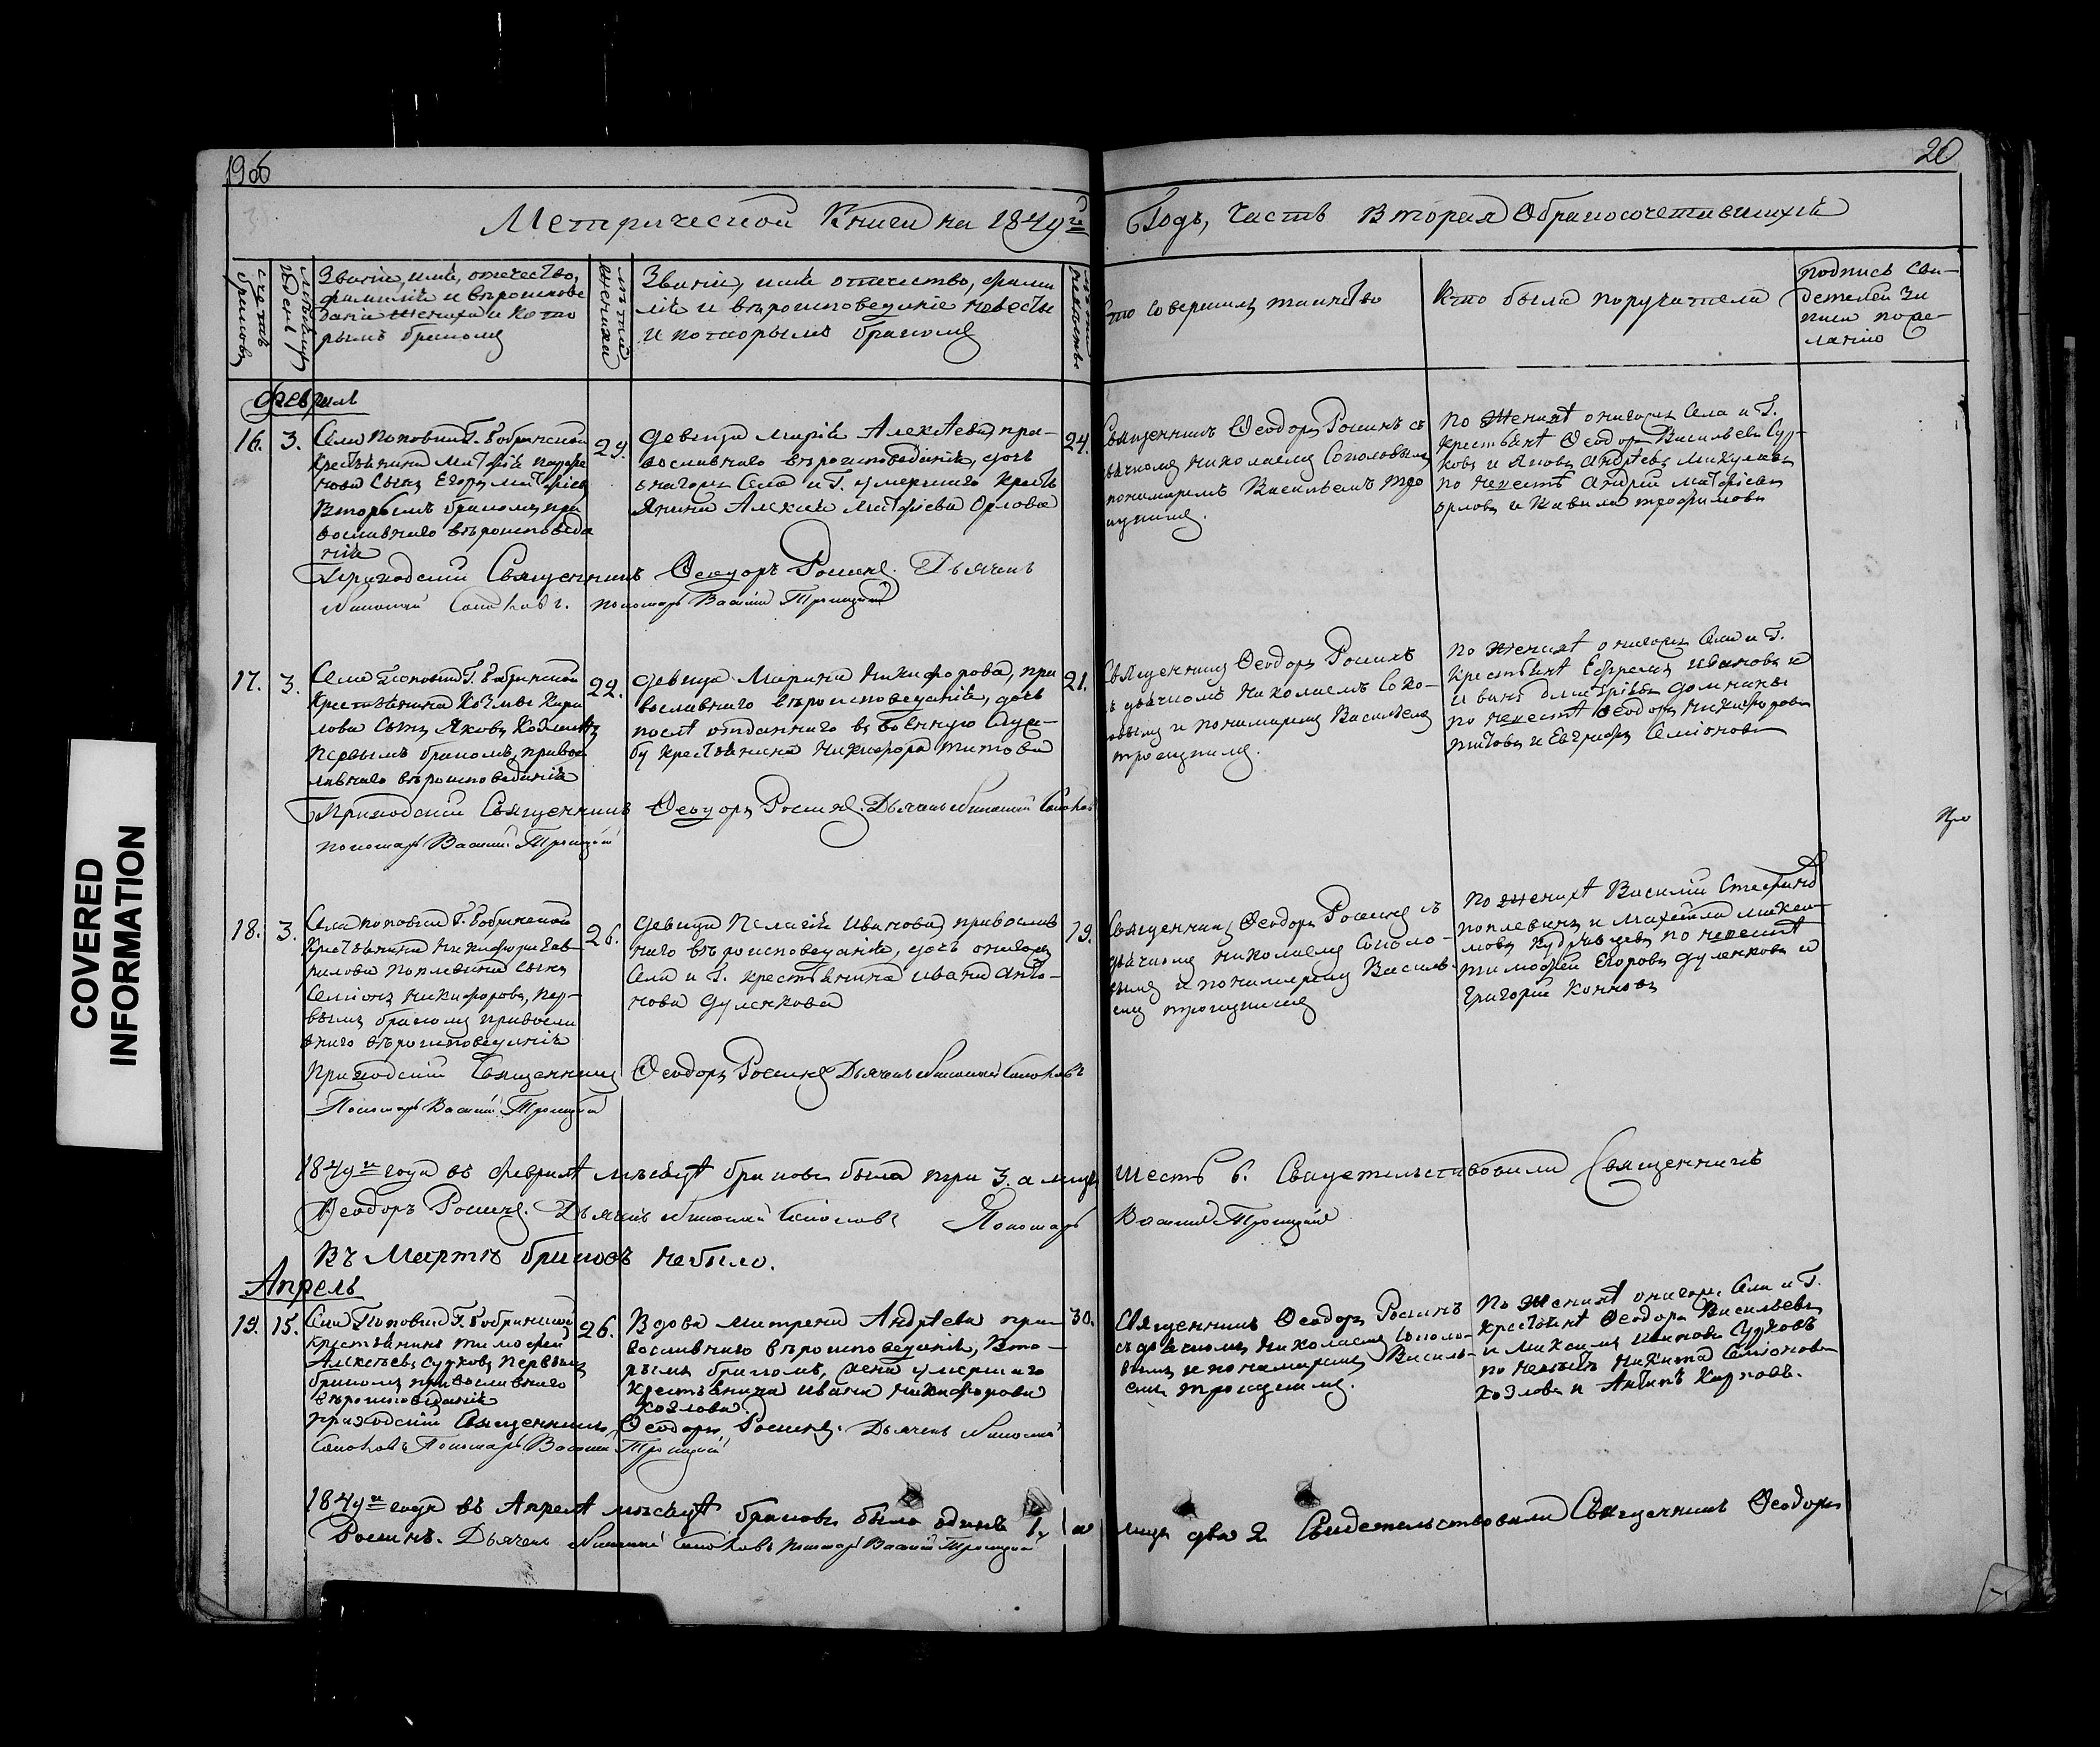 19об
20
Метрической Книги на 1849й
Годъ, Часть Вторая О бракосочетавшихся
счетъ браковъ
мѣсяцъ и день
Званіе, имя, отечество,
фамилія и вѣроисповѣ
даніе жениха и кото
рымъ бракомъ
лѣта жениха
Званіе, имя отечество, фами
лія и вѣроисповеданіе невесты
и которымъ бракомъ
лѣта невесты
Кто совершалъ таинство
Кто были поручители
подпись сви-
детелей за
писи по же-
ланію
Февраль
16.
3.
Села Поповки Г. Бобринской
крестьянина Матфія
сынъ Егоръ Матфіевъ
Вторымъ бракомъ пра
вославнаго вѣроисповѣда
нія
29.
Девица Марія Алексѣева, пра-
вославнаго вѣроисповѣданія, дочь
онагожъ Села и Г. умершаго кресть
янина Алексѣя Матфіева Орлова
24.
Священникъ Ѳеодоръ Росинъ съ
дьячкомъ Николаемъ Соколовымъ
пономаремъ Васильемъ Тро
ицкимъ.
По Женихѣ онагожъ Села и Г.
крестьянѣ Ѳеодоръ Васильевъ Суд-
ковъ и Яковъ Андрѣевъ
по невестѣ Андрей Матфіевъ
Орловъ и Трофимовъ
Приходскій Священникъ Ѳеодоръ Росинъ. Дьячекъ
Николай Соколовъ. пономарь Василій Троицкій
17.
3.
Села Поповки Г. Бобринской
крестьянина Козмы Кири
лова сынъ Яковъ Козминъ
первымъ бракомъ, право
славнаго вѣроисповеданія
22.
Девица Марина Никифорова, пра
вославнаго вѣроисповеданія, дочь
послѣ отданнаго въ военную служ-
бу крестьянина Никифора Титова
21.
Священникъ Ѳеодоръ Росинъ
съ дьячкомъ Николаемъ Соко-
ловымъ и пономаремъ Васильемъ
Троицкимъ.
По Женихѣ онагожъ Села и Г.
крестьянѣ Ефремъ Ивановъ и
Иванъ Дмитріевъ
по невестѣ Ѳеодоръ Никифоровъ
Титовъ и Евграфъ Семіоновъ
Приходскій Священникъ Ѳеодоръ Росинъ. Дьячекъ Николай Соколовъ
пономарь Василій Троицкій
18.
3.
Села Поповки Г. Бобринской
крестьянина Никифора Гав-
рилова Поплевина сынъ
Семіонъ Никифоровъ, пер-
вымъ бракомъ правосла
внаго вѣроисповеданія
26.
Девица Пелагія Иванова, православ
наго вѣроисповеданія, дочь онагожъ
Села и Г. крестьянина Ивана Анто-
нова Дуленкова
19.
Священникъ Ѳеодоръ Росинъ съ
дьячкомъ Николаемъ Соколо-
вымъ и пономаремъ Василь
емъ Троицкимъ
По женихѣ Василій Стефановъ
Поплевинъ и Михайла
Кудрявцевъ по невестѣ
Тимофей Егоровъ Дуленковъ и
Григорій Конновъ
Приходскій Священникъ Ѳеодоръ Росинъ Дьячекъ Николай Соколовъ
Пономарь Василій Троицкій
1849го года въ Февралѣ мѣсяцѣ браковъ было три 3. а лицъ шесть 6. Свидетельствовали Священникъ
Ѳеодоръ Росинъ. Дьячекъ Николай Соколовъ Пономарь Василій Троицкій
Въ Мартѣ браковъ не было.
Апрель
19.
15.
Села Поповки Г. Бобринской
крестьянинъ Тимофей
Алексѣевъ Судковъ первымъ
бракомъ православнаго
вѣроисповѣданія
26.
Вдова Матрена Андрѣева пра-
вославнаго вѣроисповеданія, Вто-
рымъ бракомъ, жена умершаго
крестьянина Ивана Никифорова
Козлова.
30.
Священникъ Ѳеодоръ Росинъ
съ дьячкомъ Николаемъ Соколо-
вымъ и пономаремъ Василь-
емъ Троицкимъ.
По Женихѣ онагожъ Села и Г.
крестьянѣ Ѳеодоръ Васильевъ
и Судковъ
по невестѣ Никита Семіоновъ
Козловъ и Антипъ Карповъ.
приходскій Священникъ Ѳеодоръ Росинъ. Дьячекъ Николай
Соколовъ Пономарь Василій Троицкій
1849го года въ Апрелѣ мѣсяцѣ браковъ было одинъ 1. а лицъ два 2 Свидетельствовали Священникъ Ѳеодоръ
Росинъ. Дьячекъ Николай Соколовъ пономарь Василій Троицкій
COVERED
INFORMATION